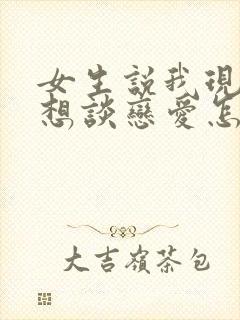 女生説我現
想談戀愛怎
大吉嶺茶包